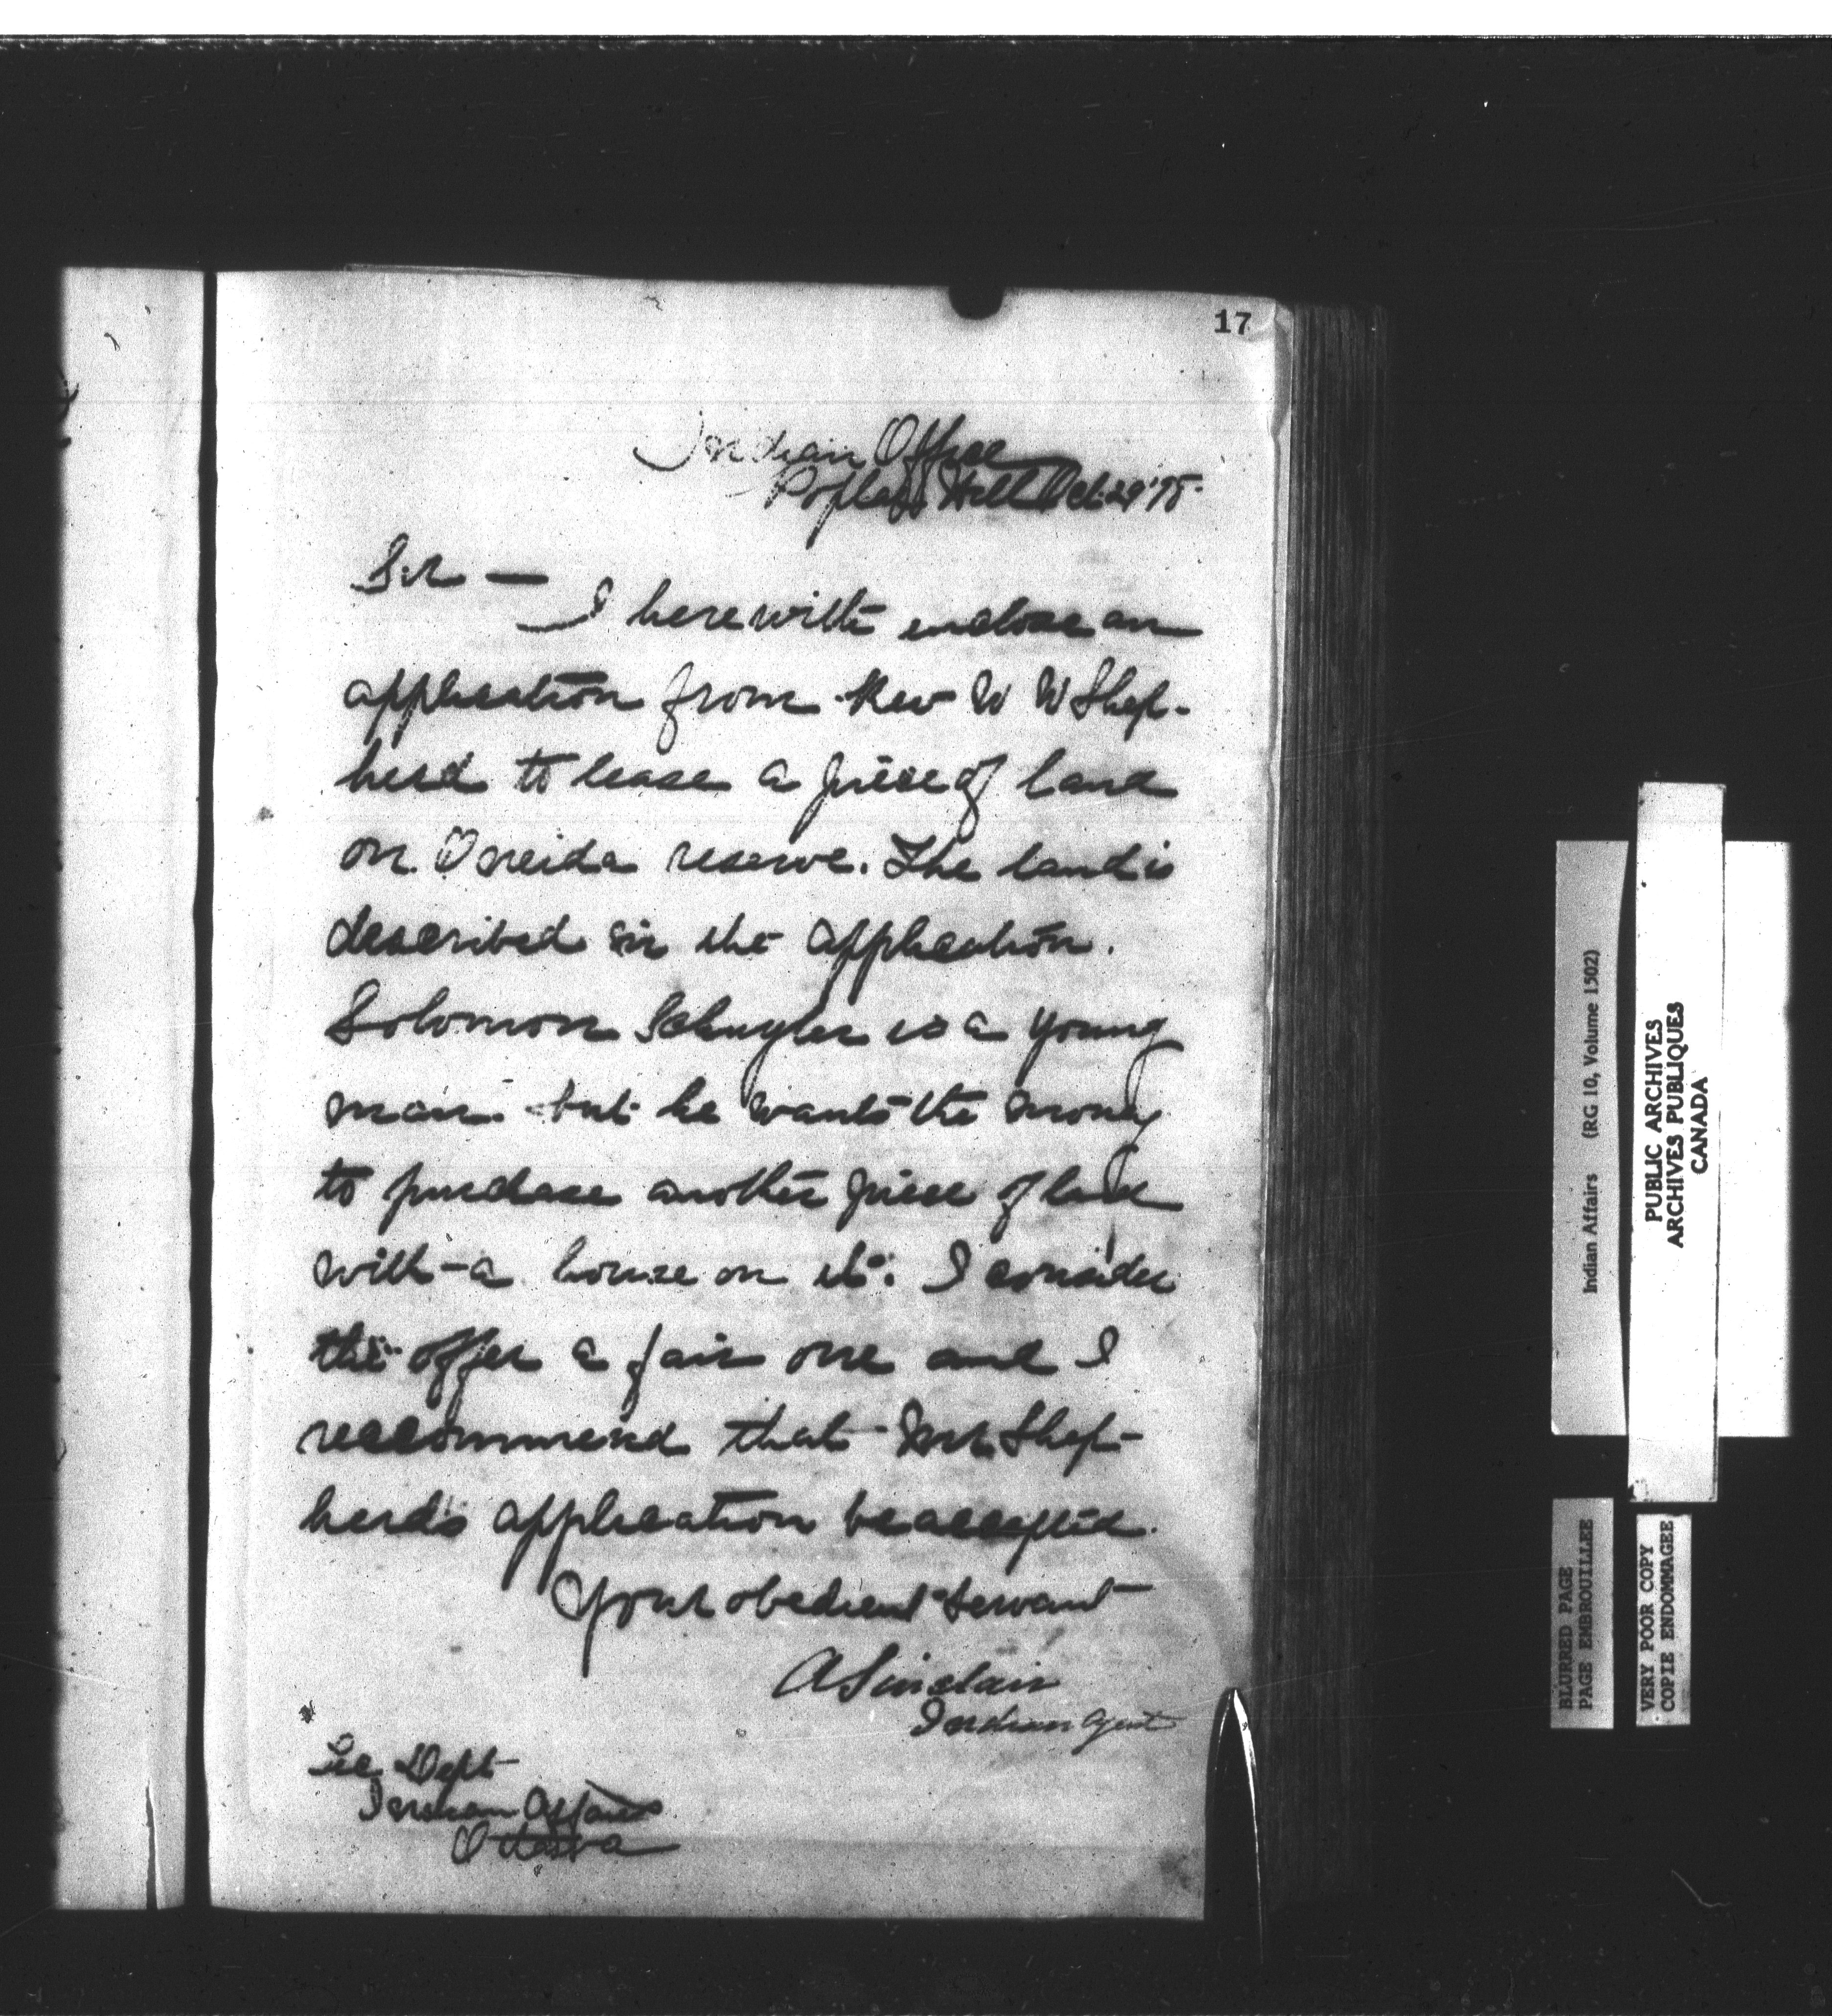 17
Indian Office
Poplar Hill Oct 29 '98.
Sir —
I herewith enclose an
application from Rev W W Shep-
herd to lease a piece of land
on Oneida reserve. The land is
described in the application.
Solomon Schuyler is a young
man but he wants the money
to purchase another piece of land
with a house on it. I consider
the offer a fair one and I
recommend that Mr. Shep-
herd's application be accepted.
Your obedient servant
A Sinclair
Indian Agent
Sec Dept
Indian Affairs
Ottawa
Indian Affairs (RG 10, Volume 1502)
PUBLIC ARCHIVES
ARCHIVES PUBLIQUES
CANADA
BLURRED PAGE
PAGE EMBROUILLEE
VERY POOR COPY
COPIE ENDOMMAGEE